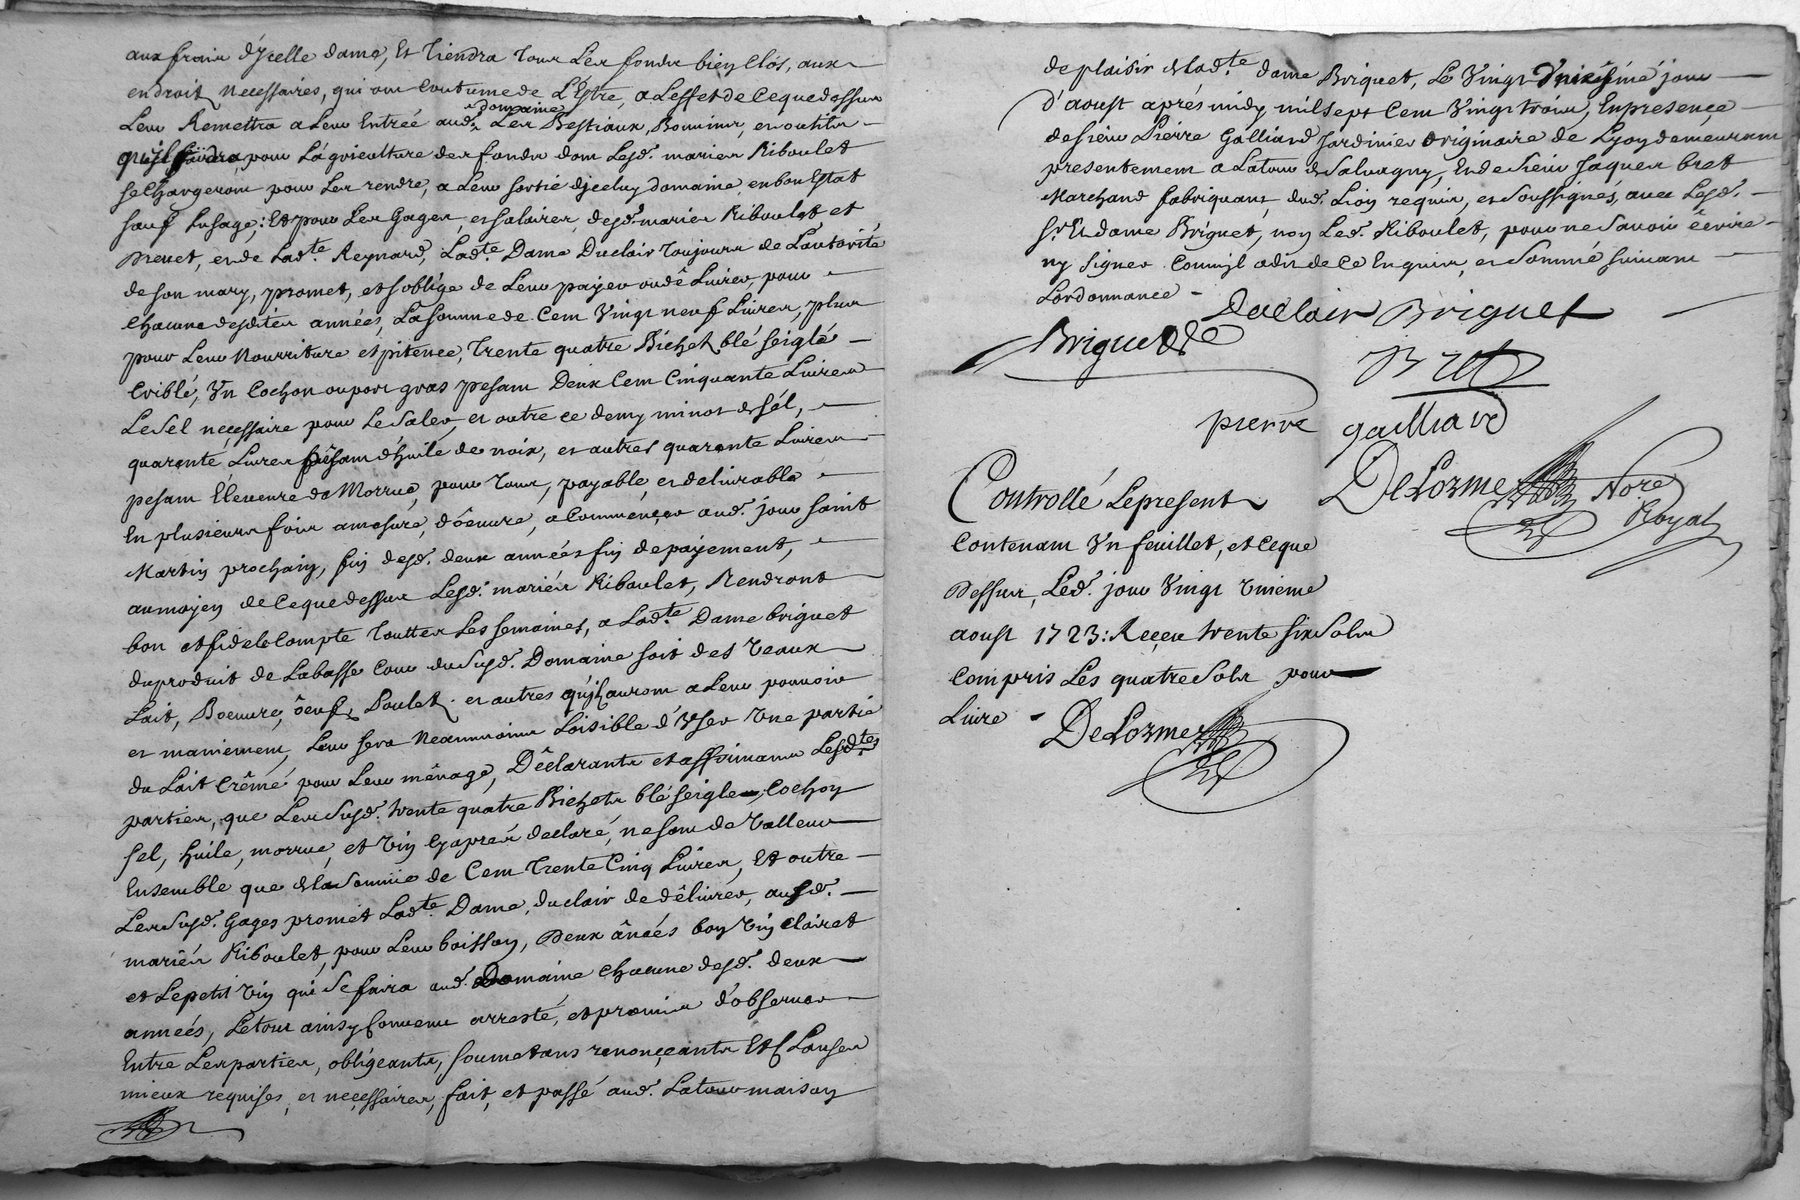 aux frais d'ycelle dame, et tiendra tous les fonds bien clos, aux
endroits necessaires, qui ont coutume de L'Estre, a L'effet de ce que dessus
Leur Remettra a Leur Entreé aud. domaine Les Bestiaux, Bouviers, et outils
qu'il faudra pour L'agriculture des fonds dont Lesd. mariés Riboulet
se Chargeront pour Les rendre, a Leur sortie d'jceluy domaine en bon Estat
sauf Lusage; Et pour Les Gages, et salaires, desd. mariés Riboulet et
Prevet, et de Lad.te Reynard, Lad.te Dame Duclair toujours de Lautorité
de son mary, promet, et s'oblige de Leur payer ou dêlivrer, pour
Chacune desdites années, La somme de Cent Vingt neuf Livres, plus
pour Leur Nourriture et pitence, trente quatre Bichets blé seiglé
Criblé, Vn Cochon ou porc gras pesant Deux Cent Cinquante Livres
Le sel necessaire pour Le saler, et outre ce demy minot de sél,
quarante Livres pesant d'huile de noix, et autres quarante Livres
pesant de Morrue, pour tout, payable, et delivrable
En plusieurs fois a mesure, d'ôeuvre, a Commençer aud. jour saint
Martin prochain, fin desd. deux années fin de payement,
au moyen de ce que dessus Lesd. mariés Riboulet, Rendront
bon et fidele Compte toutes Les semaines, a Lad.te Dame briguet
du produit de Labasse Cour du susd. Domaine soit des Veaux
Lait, Boeurre, ôeufs, Poulets et autres qu'ils auront a Leur pouvoir
et maniement, Leur sera Neanmoins Loisible d'Vser Vne partie
du Lait Crêmé pour Leur mênage, Dêclarants et affirmants Lesd.tes
parties, que Les susd. trente quatre Bichets blé seigle, Cochon
sel, huile, morrue, et Vin Cy apres declaré, ne sont de Valleur
Ensemble que de La somme de Cent Trente Cinq Livres, Et outre
Les susd. Gages promet Lad.te Dame, duclair de dêlivrer, ausd.
mariés Riboulet, pour Leur boisson, Deux ânées bon Vin Clairet
et Le petit Vin qui se faira aud. Domaine Chacune desd. deux
anneés, Le tout ainsy Convenu arresté, et promis d'observer
Entre Les parties, obligeants, soumetans renonçeants Et Clauses
mieux requises, et neçessaires, fait, et passé aud. Latour maison
de plaisir de Lad.te dame Briguet, Le Vingt Vniéme jour
d'aoust aprés midy mil sept Cent Vingt trois, En presençe
de sieur Pierre Galliard Jardinier originaire de Lyon demeurant
presentement a Latour de Salvagny, Et de sieur Jaques bret
Marchand fabriquant dud. Lion requis, et Soussignés, avec Lesd.
sr. Et dame Briguet, non Led. Riboulet, pour ne Savoir êcrire
ny signer Comm'il a dit de Ce Enquis, et Sommé suivant
Lordonnance
Duclair Briguet
Briguet
Bret
pierre gailliard
DeLorme Nore
Royal
Controllé Le present
Contenant Vn feuillet, et Ceque
Dessus, Led. jour Vingt Vnieme
aoust 1723: Receu trente six Sols
Compris Les quatre Sols pour
Livre
DeLorme